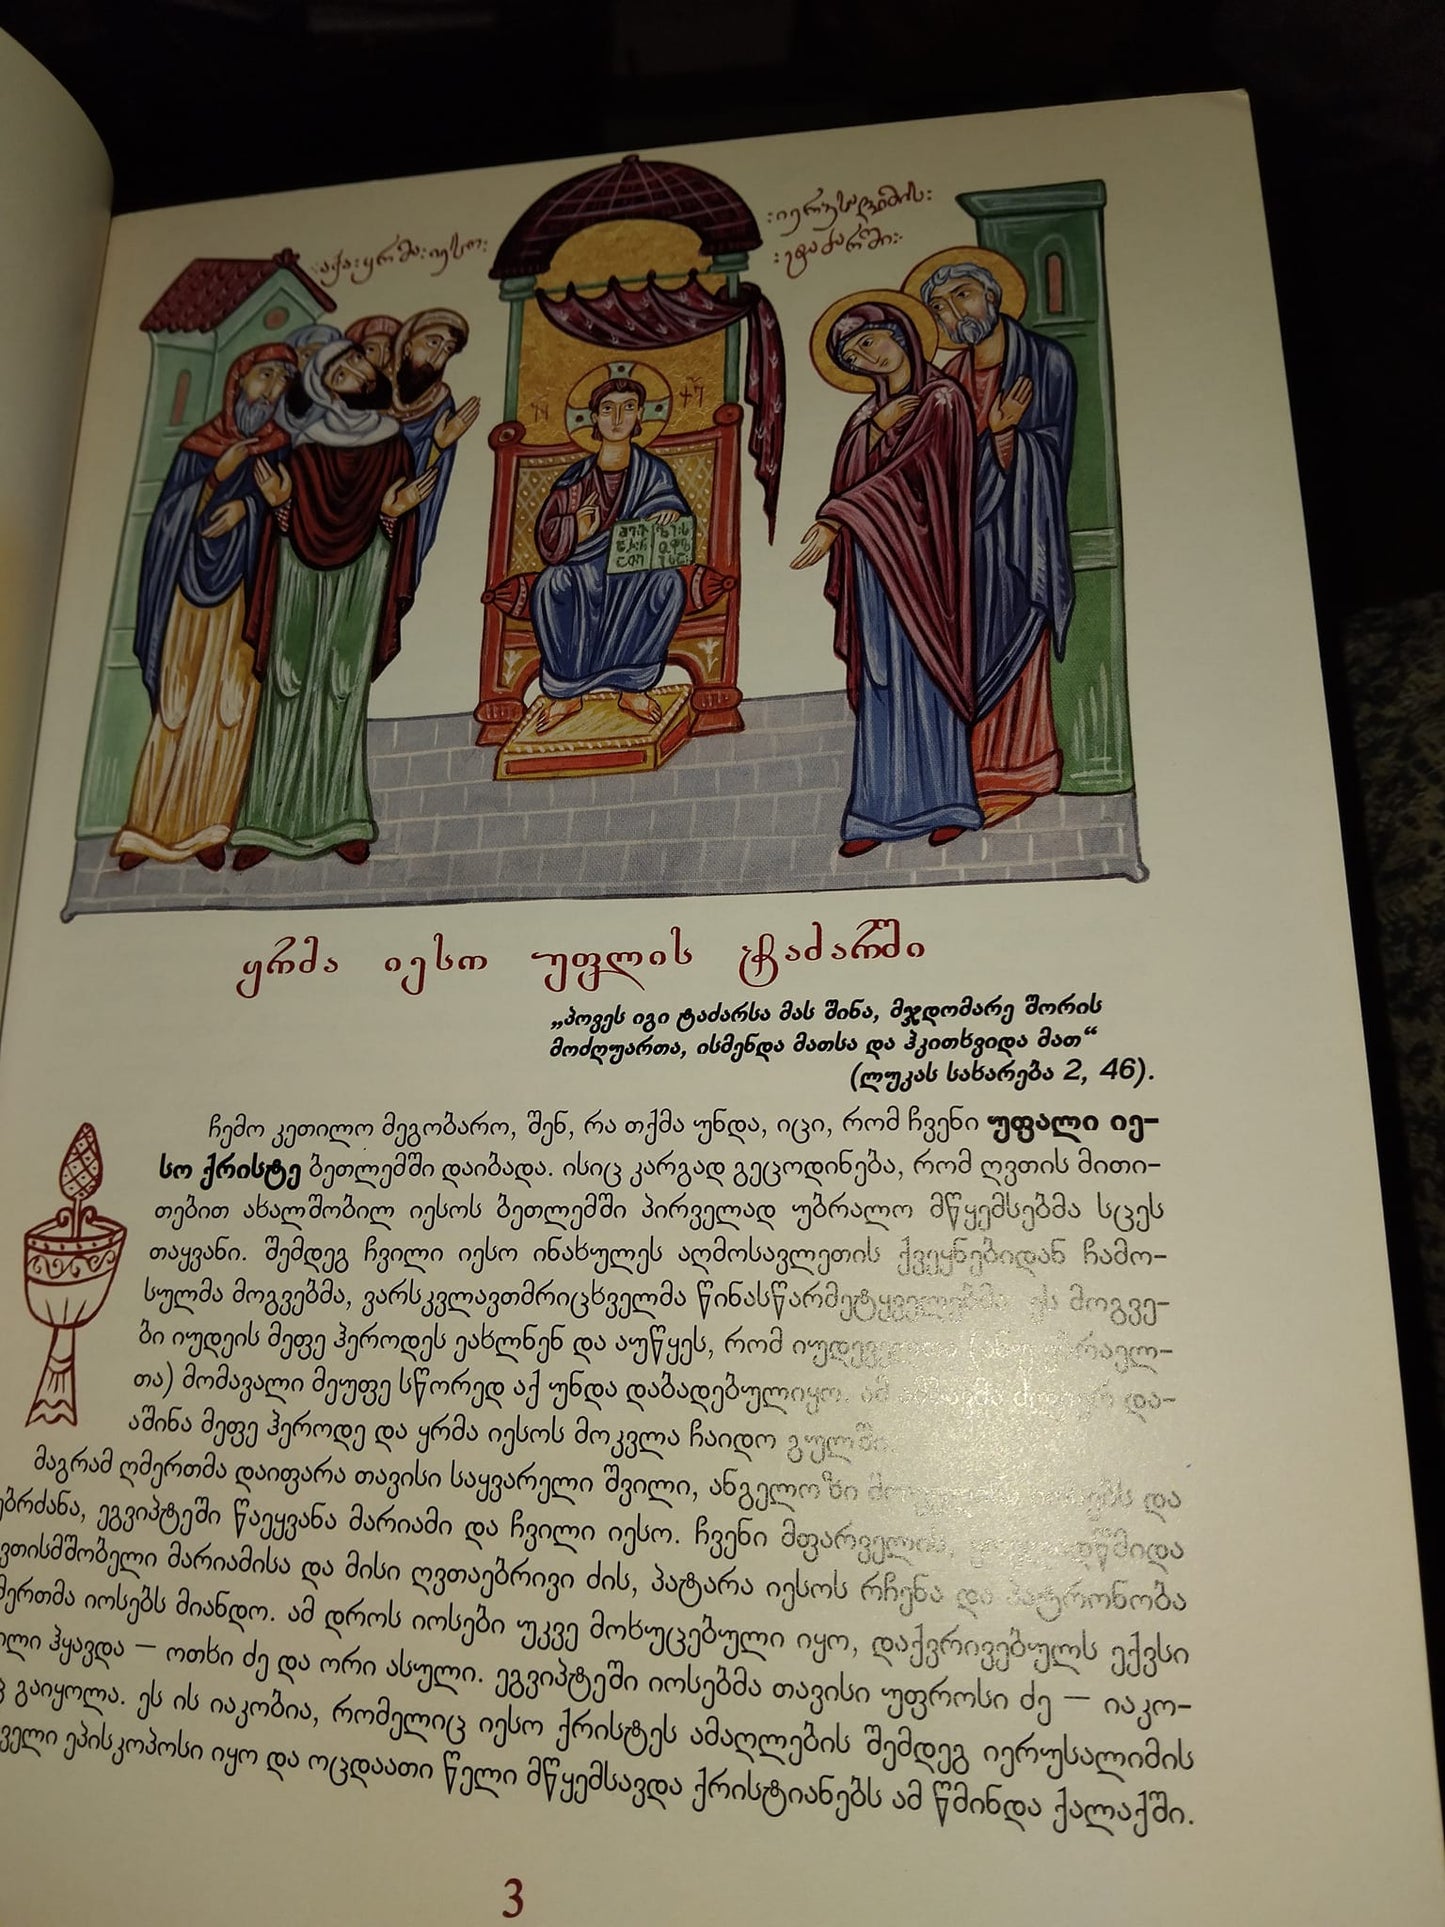 აქა : ყრმა : იესო :
: იერუსალიმის :
: ტაძარში :
ყრმა იესო უფლის ტაძარში
„პოვეს იგი ტაძარსა მას შინა, მჯდომარე შორის
მოძღუართა, ისმენდა მათსა და ჰკითხვიდა მათ“
(ლუკას სახარება 2, 46).
ჩემო კეთილო მეგობარო, შენ, რა თქმა უნდა, იცი, რომ ჩვენი უფალი იე-
სო ქრისტე ბეთლემში დაიბადა. ისიც კარგად გეცოდინება, რომ ღვთის მითი-
თებით ახალშობილ იესოს ბეთლემში პირველად უბრალო მწყემსებმა სცეს
თაყვანი. შემდეგ ჩვილი იესო ინახულეს აღმოსავლეთის ქვეყნებიდან ჩამო-
სულმა მოგვებმა, ვარსკვლავთმრიცხველმა წინასწარმეტყველებმა. ეს მოგვე-
ბი იუდეის მეფე ჰეროდეს ეახლნენ და აუწყეს, რომ
თა) მომავალი მეუფე სწორედ აქ უნდა დაბადებულიყო. ამ და-
აშინა მეფე ჰეროდე და ყრმა იესოს მოკვლა ჩაიდო გულში.
მაგრამ ღმერთმა დაიფარა თავისი საყვარელი შვილი, ანგელოზი და
ეგვიპტეში წაეყვანა მარიამი და ჩვილი იესო. ჩვენი მფარველის,
მარიამისა და მისი ღვთაებრივი ძის, პატარა იესოს რჩენა და პატრონობა
იოსებს მიანდო. ამ დროს იოსები უკვე მოხუცებული იყო, დაქვრივებულს ექვსი
ჰყავდა — ოთხი ძე და ორი ასული. ეგვიპტეში იოსებმა თავისი უფროსი ძე — იაკო-
გაიყოლა. ეს ის იაკობია, რომელიც იესო ქრისტეს ამაღლების შემდეგ იერუსალიმის
ეპისკოპოსი იყო და ოცდაათი წელი მწყემსავდა ქრისტიანებს ამ წმინდა ქალაქში.
3